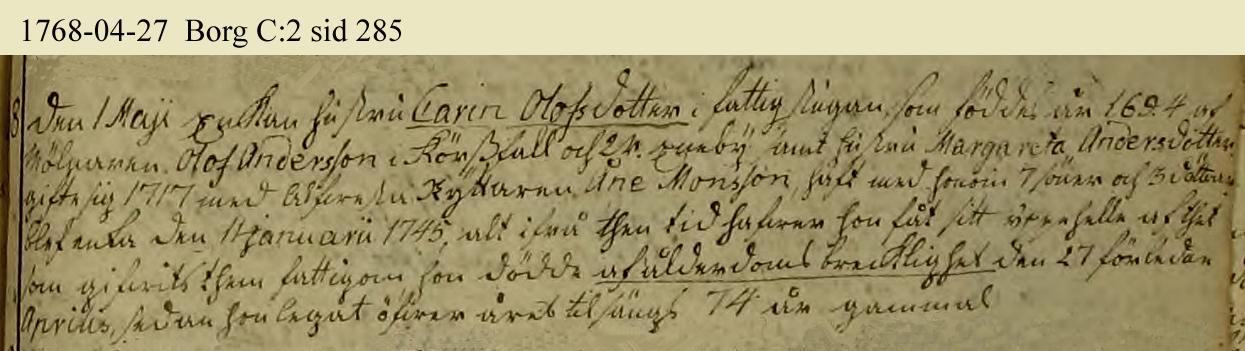 1768-04-27 Borg C:2 sid 285
8 den 1 Maji Enkian hustru Carin Olofsdotter i fattigstugan, som föddes år 1694 af
Mölnaren Olof Andersson i Körsfall och Eneby samt hustru Margareta Andersdotter
gifte sig 1717 med Ryttaren Åne Monsson, haft med honom 7 söner och 3 döttrar
blef enka den Januarii 1745, alt ifrå then tid hafwer hon fåt sitt uppehelle af thet
som gifwits them fattigom hon dödde af ålderdoms brecklighet den 27 förledne
Aprilis, sedan hon legat öfwer året til sängs 74 år gammal